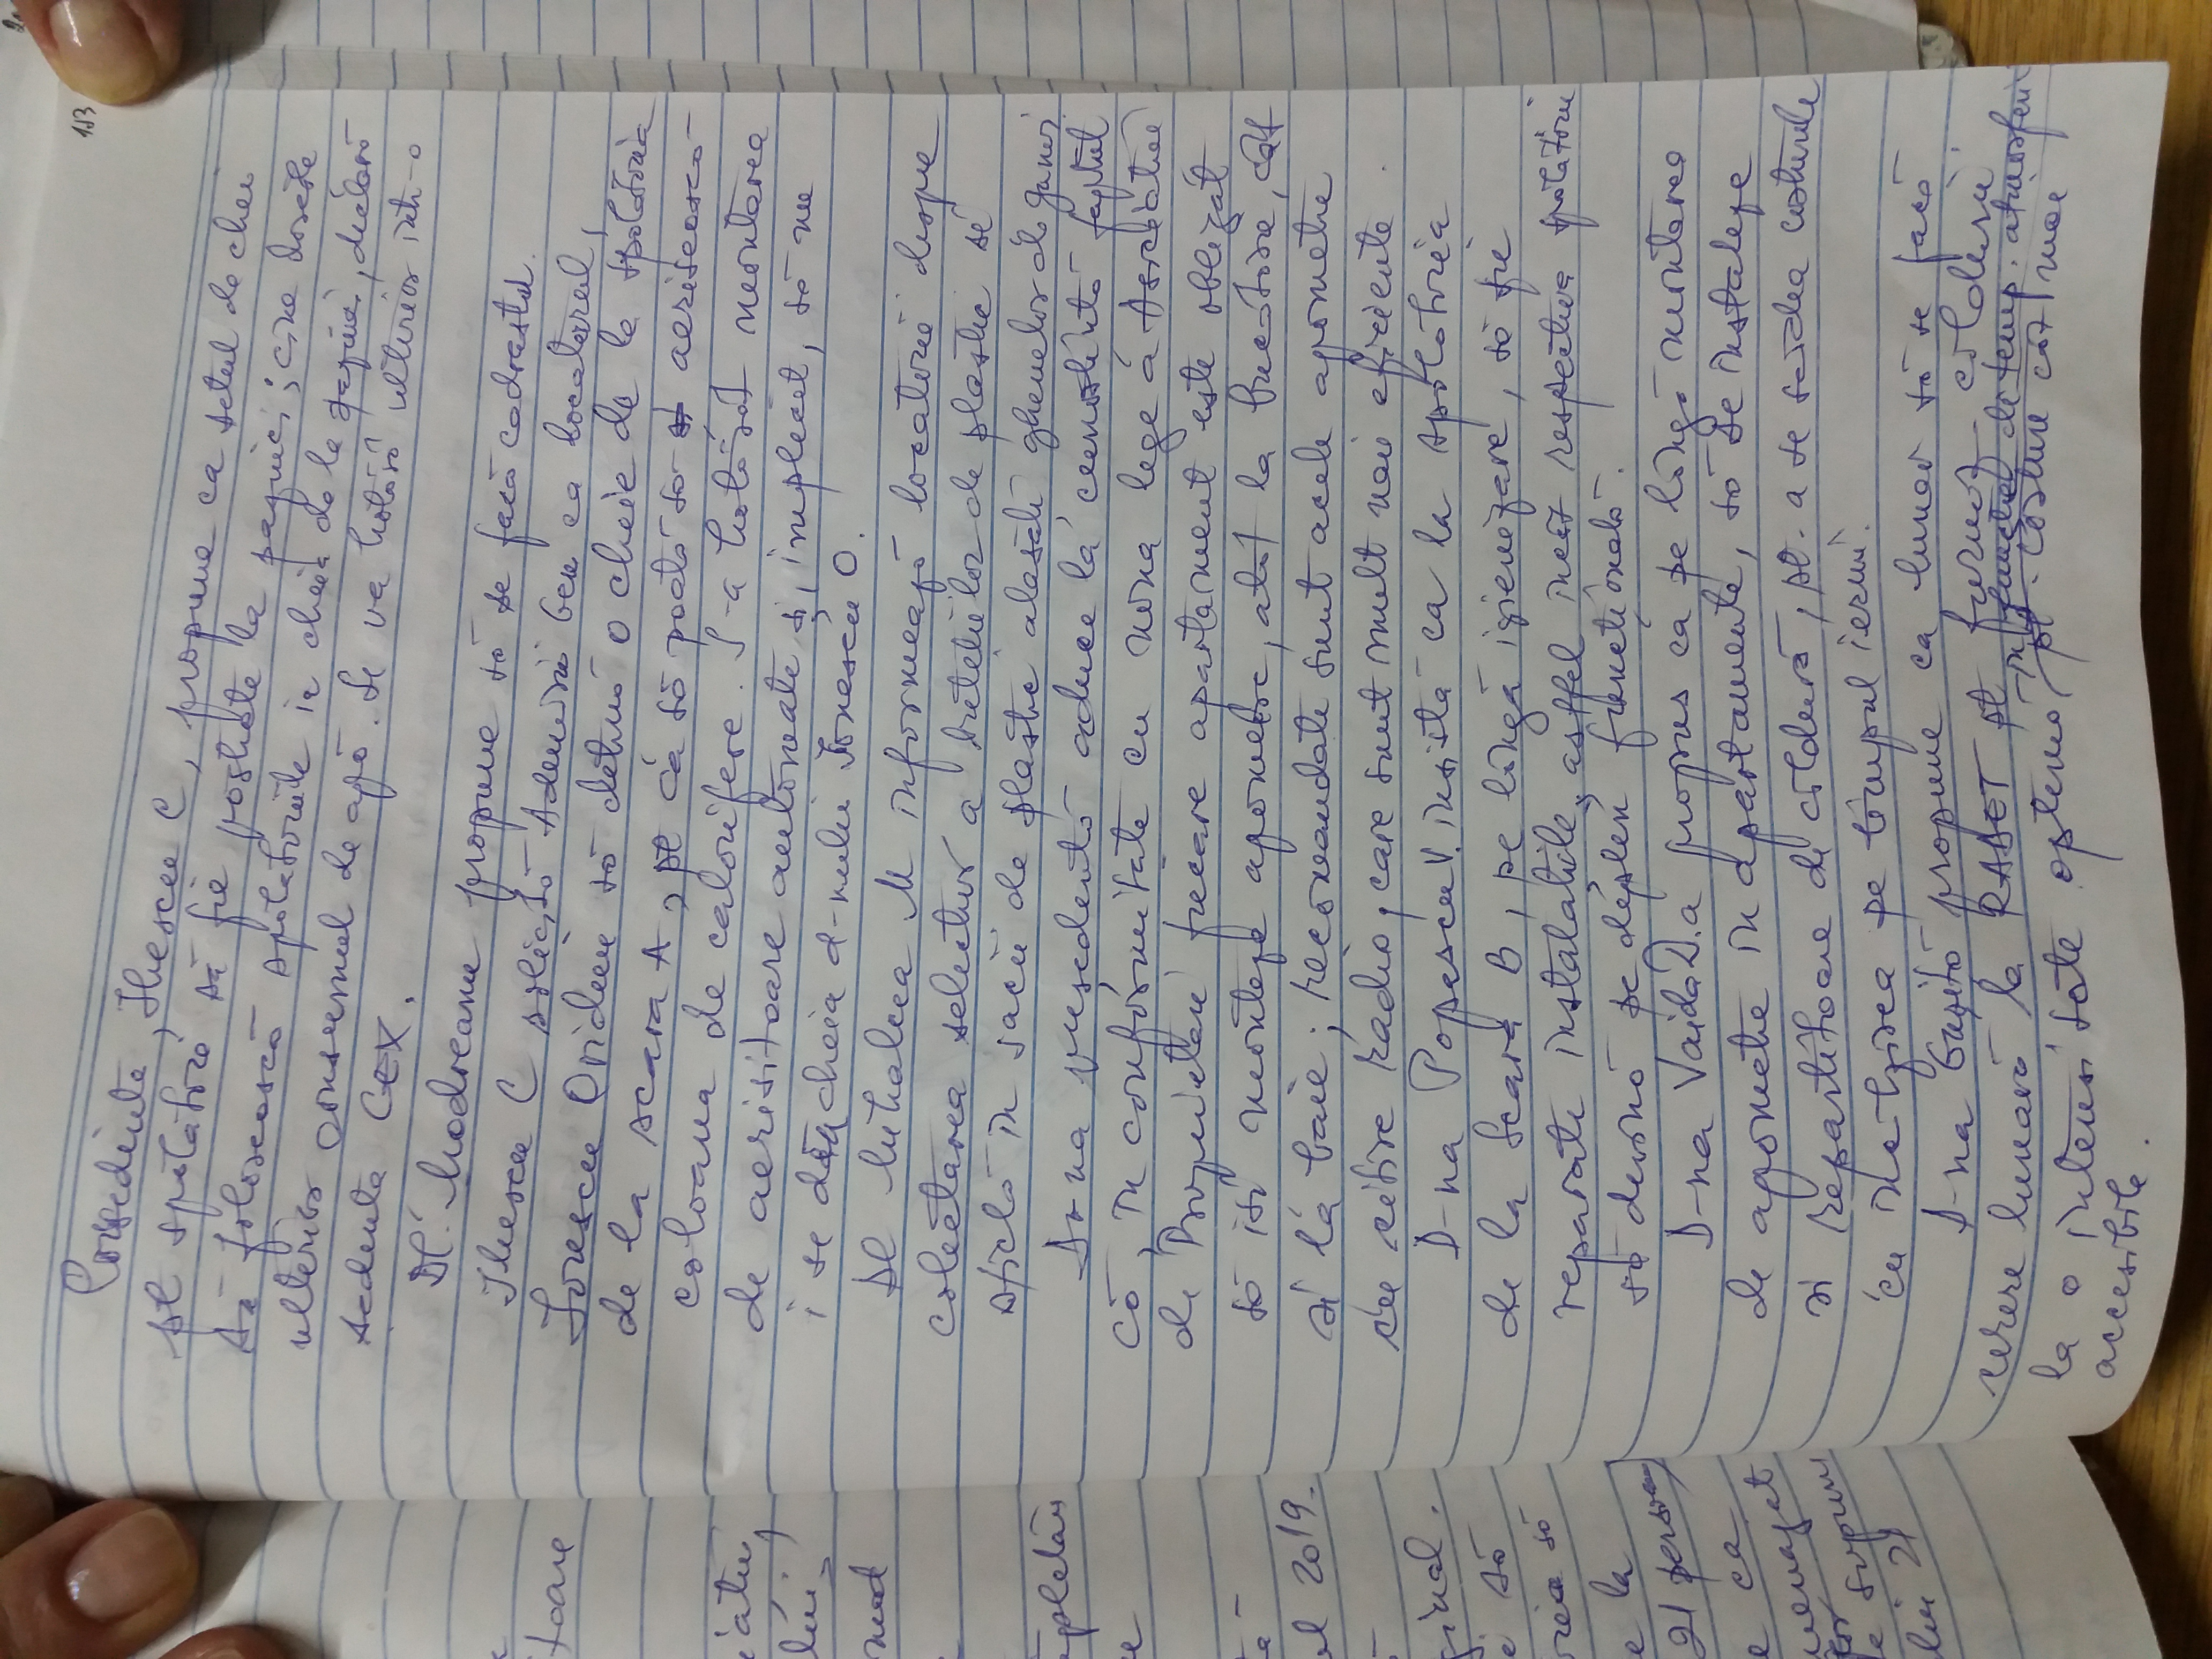 153
Președinte, Iliescu C, propune ca setul de chei
pt spălători să fie postate la pagină; cine dorește
să folosească spălătoriile ia cheia de la pagină, declară
ulterior consumul de apă. Se va hotărî ulterior într-o
ședință CEX.
Dl. Modreanu propune să se facă cadrastul.
Iliescu C solicită Adeverini ca locatarul,
Ionescu Ovidiu să dețină o cheie de la spălătoria
de la scara A, pt ca să poată să aerisească
coloana de calorifere. S-a hotărât montarea
de aerisitoare automate și, implicit, să nu
i se dea cheia d-nului Ionescu O.
Dl Mihalcea M informează locatarii despre
colectarea selectivă a sticlelor de plastic și
sticlă în saci de plastic alături ghenelor de gunoi
D-na președintă aduce la cunoștință faptul
că, în conformitate cu noua lege a Asociației
de Proprietari fiecare apartament este obligat
să își monteze apometre, atât la bucătărie, cât
și la baie; recomandate sunt acele apometre
cu citire radio, care sunt mult mai eficiente.
D-na Popescu V. insistă ca la spălătoria
de la Scara B, pe lângă igienizare, să fie
reparate instalațiile, astfel încât respectiva spălătorie
să devină pe deplin funcțională.
D-na Vaida D. a propus ca pe lângă montarea
de apometre în apartamente, să se instaleze
și repartitoare de căldură, pt. a se scădea costurile
cu încălzirea pe timpul iernii.
D-na propune ca lunar să se facă
cerere lunară la RADET pt furnizarea căldurii
la o intensitate optimă, în funcție de temp. atmosferică pt. costuri cât mai
accesibile.
toare
2019.
ginal.
să
să
e la
21 persoane
e ca